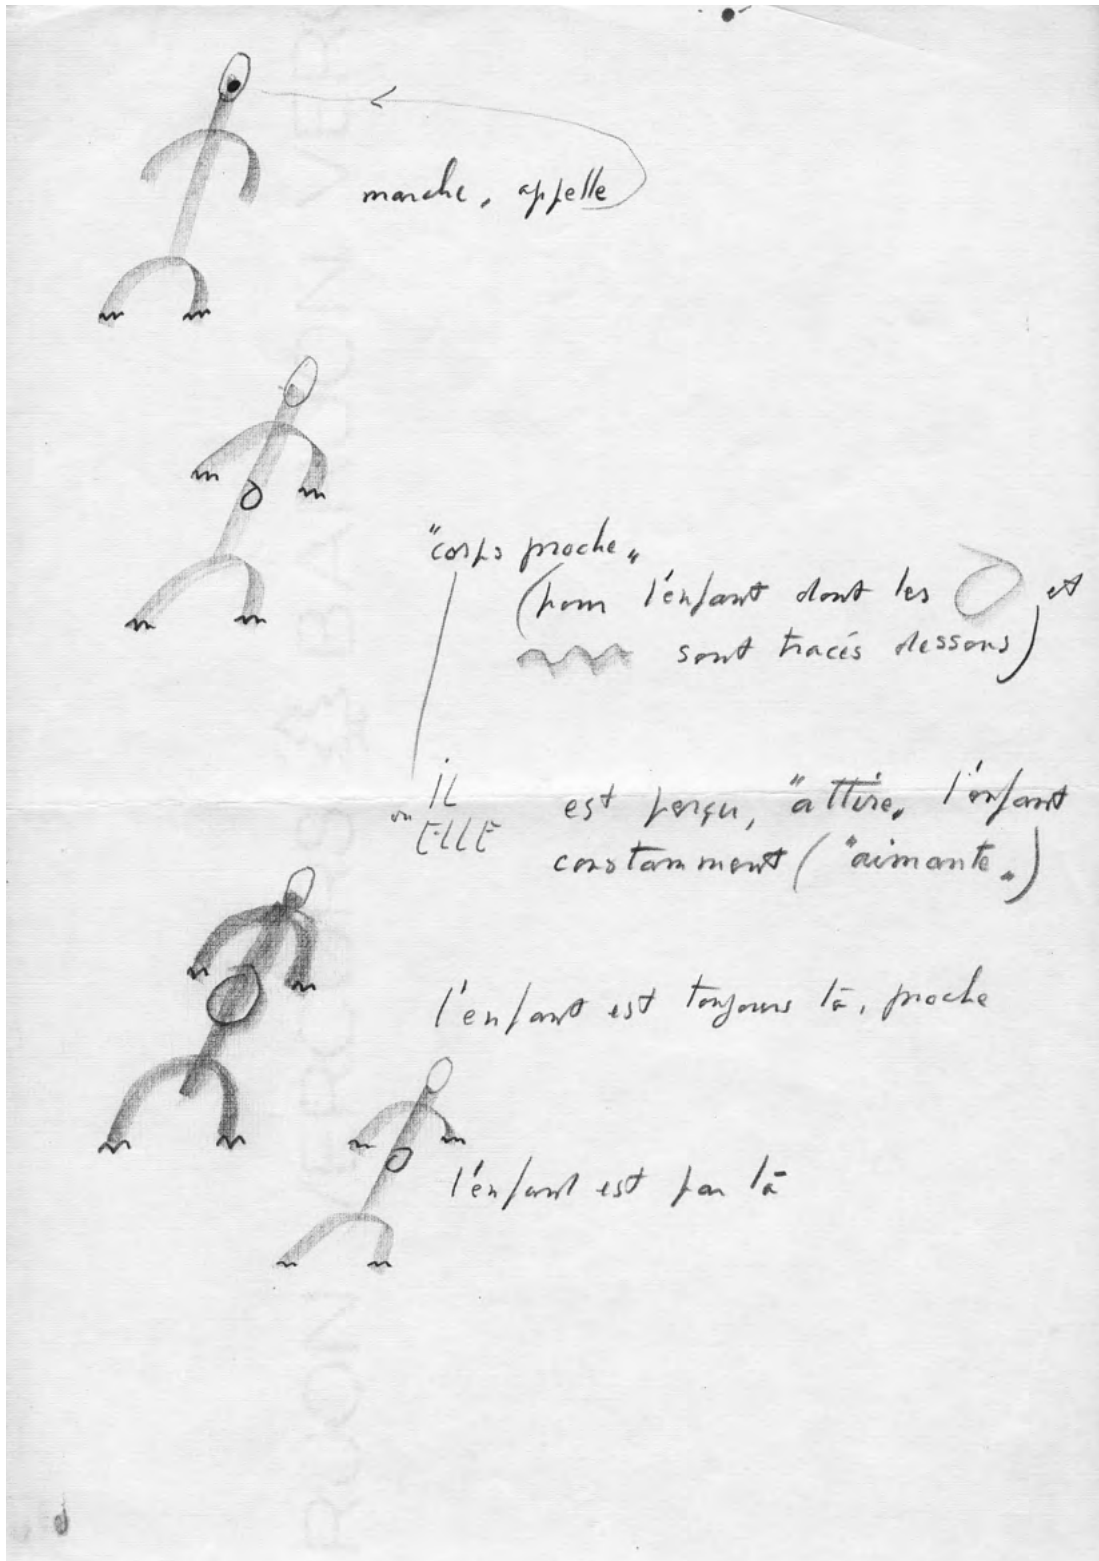 marche, appelle
"corps proche"
(pour l'enfant dont les et
sont tracés dessous)
ou IL
ELLE
est perçu, "attire" l'enfant
constamment ("aimante")
l'enfant est toujours là, proche
l'enfant est par là